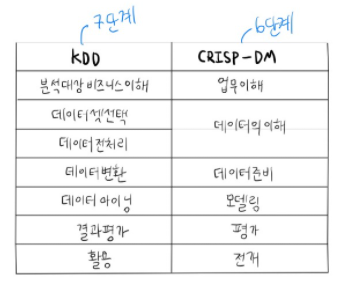 7단계 6단계
KDD CRISP-DM
분석대상 비즈니스 이해 업무이해
데이터셋선택
데이터의 이해
데이터전처리
데이터변환 데이터준비
데이터 마이닝 모델링
결과평가 평가
활용 전개